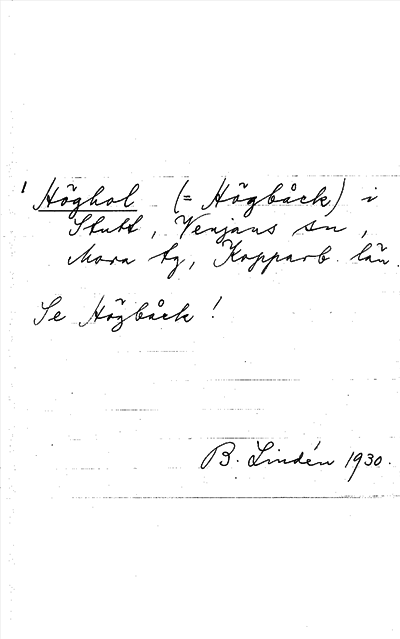 1 Höghol (= Högbäck) i
Stutt, Venjans sn,
Mora tg, Kopparb. län.
Se Högbäck!
B. Lindén 1930.